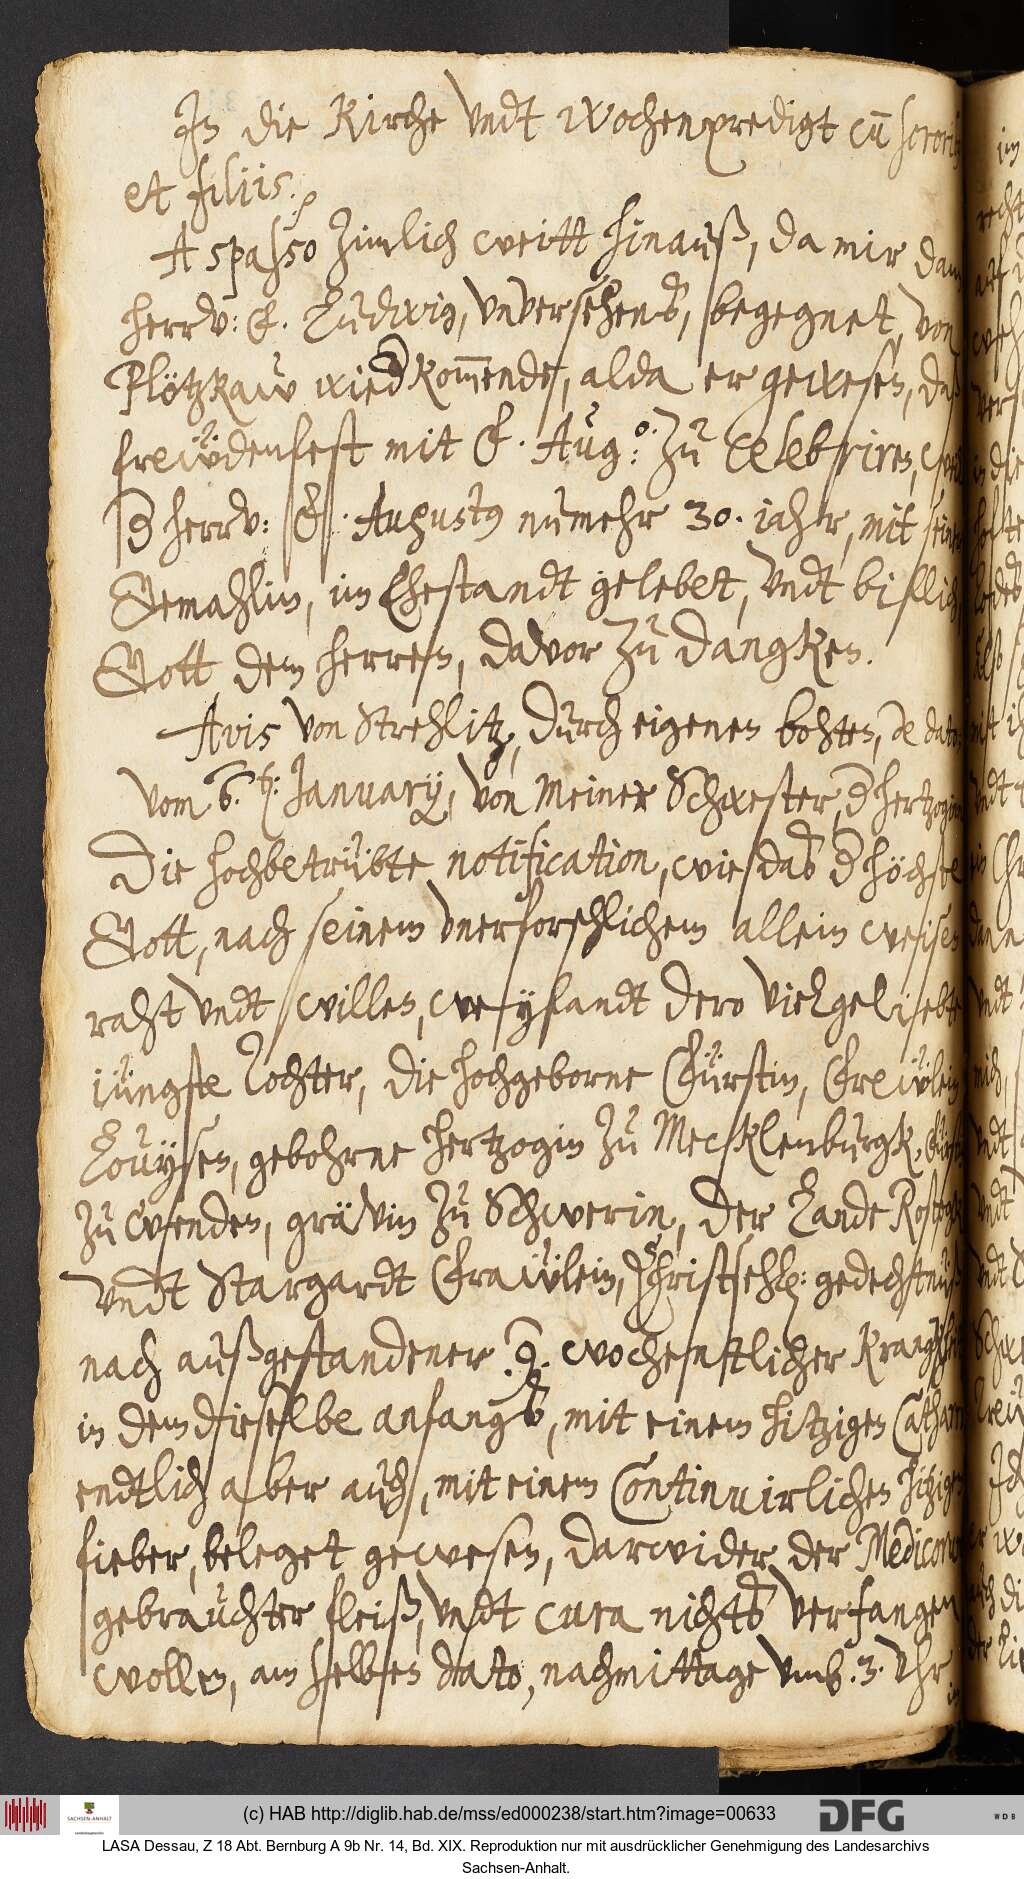 In die Kirche Vndt Wochenpredigt cũ sororib
et filijs.
A spasso Zimlich weitt hinauß, da mir dann
herrv: F. Ludwig, vnversehends, begegnet, von
Plötzkaw wiedkom̄ende, alda er gewesen, daß
frewdenfest mit F. Aug:o: Zu celebriren, weil
d herrv: F. Augusty nu mehr 30. jahr, mit seiner
Gemahlin, im Ehestandt gelebet, Vndt billich,
Gott dem herren, davor Zu dangken.
Avis von Strehlitz, durch eigenen bohten, de dato
vom 6. h: January, von Meiner Schwester, d hertzogin
Die hochbetrübte notification, wie das d höchste
Gott, nach seinem vnerforschlichem allein weisen
raht Vndt willen, weylandt dero vielgeliebte
iüngste Tochter, die hochgeborne Fürstin, Frewlein
Louysen, gebohrne Hertzogin Zu Mecklenburgk, Fürstin
Zu Wenden, grävin Zu Schwerin, der Lande Rostogk
Vndt Stargardt Frawlein, Christsehl: gedechtnuß
nach außgestandener 9. wochentlicher Krangkheit
in dem dieselbe anfangs, mit einem hitzigen Catharr
endtlich aber auch, mit einem Continuirlichen hitzigen
fieber, beleget gewesen, darwider der Medicorum
gebrauchter fleiß, Vndt cura nichts verfangen
wollen, am selben dato, nachmittage vmb. 3. Vhr
in
(c) HAB http://diglib.hab.de/mss/ed000238/start.htm?image=00633
SACHSEN-ANHALT
DFG
WDB
LASA Dessau, Z 18 Abt. Bernburg A 9b Nr. 14, Bd. XIX. Reproduktion nur mit ausdrücklicher Genehmigung des Landesarchivs
Sachsen-Anhalt.